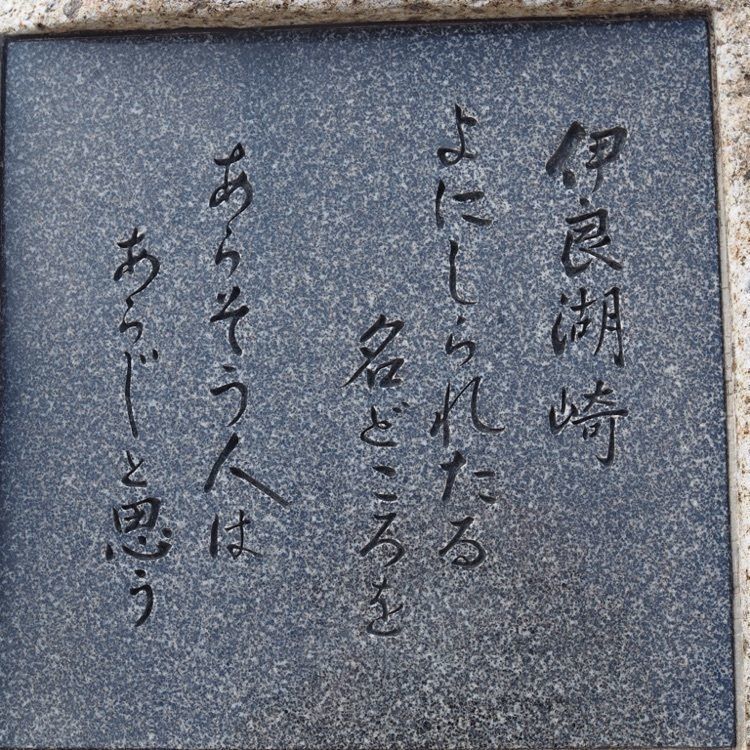 伊良湖崎
よにしられたる
名どころを
あらそう人は
あらじと思う